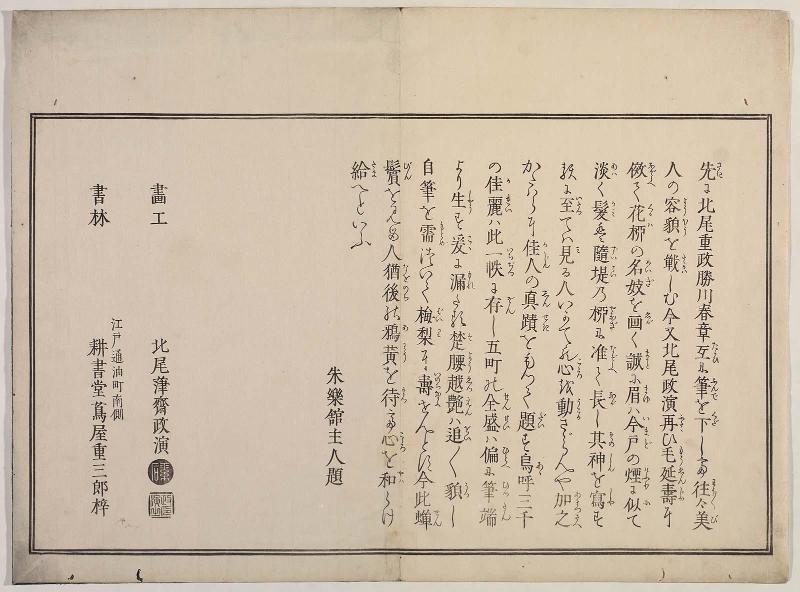 先に北尾重政勝川春章互に筆を下して往々美
人の容貌を戦しむ今又北尾政演再ひ毛延壽に
倣て花柳の名妓を画く誠に眉は今戸の煙に似て
淡く髪は隨堤の柳に准て長し其神を寫す
に至ては見る人いかてか心を動さゝらんや加之
佳人の真蹟をもつて題す嗚呼三千
の佳麗は此一帙に存し五町の全盛は偏に筆端
より生す爰に漏たる楚腰越艶は追々貌し
自筆を需ついて梅梨に壽をんとす今此蟬
鬢を人猶後の鴉黄を待て心を和らけ
給へといふ
朱樂館主人題
畫工
北尾葏齋政演
書林
江戸通油町南側
耕書堂蔦屋重三郎梓